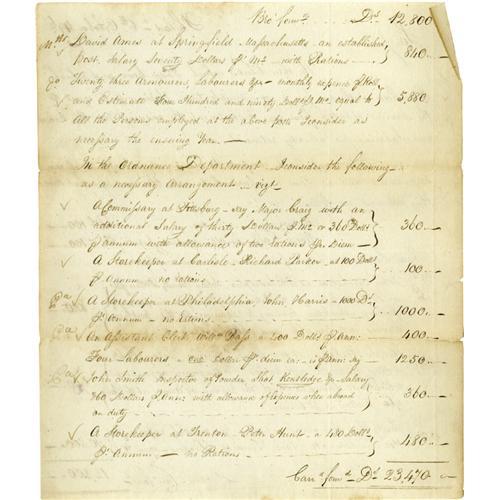 Bro.t forw.d Drs 12,800
Mtts David Ames at Springfield Massachusetts an established
Post. Salary Seventy Dollars pr Mo. with Rations 840
Do Twenty three Armourers, Labourers &c monthly expence pr Roll
and Estimate Four Hundred and ninety Dolls pr Mo. equal to 5,880
All the Persons employed at the above post I consider as
necessary the ensuing Year
In the Ordnance Department I consider the following
as a necessary Arrangement vizt
A Commissary at Pittsburg say Major Craig with an
additional Salary of thirty Dollars pr Mo. or 360 Dolls 360
pr annum with allowance of two Rations pr Diem
A Storekeeper at Carlisle Richard Parker at 100 Dolls
pr Annum no rations 100
Pa A Storekeeper at Philadelphia, John Harris 1000 Ds
pr Annum no rations 1000
Pa An Assistant Clerk 400 Dolls pr Ann: 400
Four Labourers one Dollar pr diem ea: is pr Ann: say 1250
John Smith Inspector of Powder Shot Kentledge &c Salary
360 Dollars pr Ann: with allowance of expences when abroad 360
on duty
A Storekeeper at Trenton Peter Hunt a 480 Dolls
pr Annum no Rations 480
Carrd forwd Ds 23,470